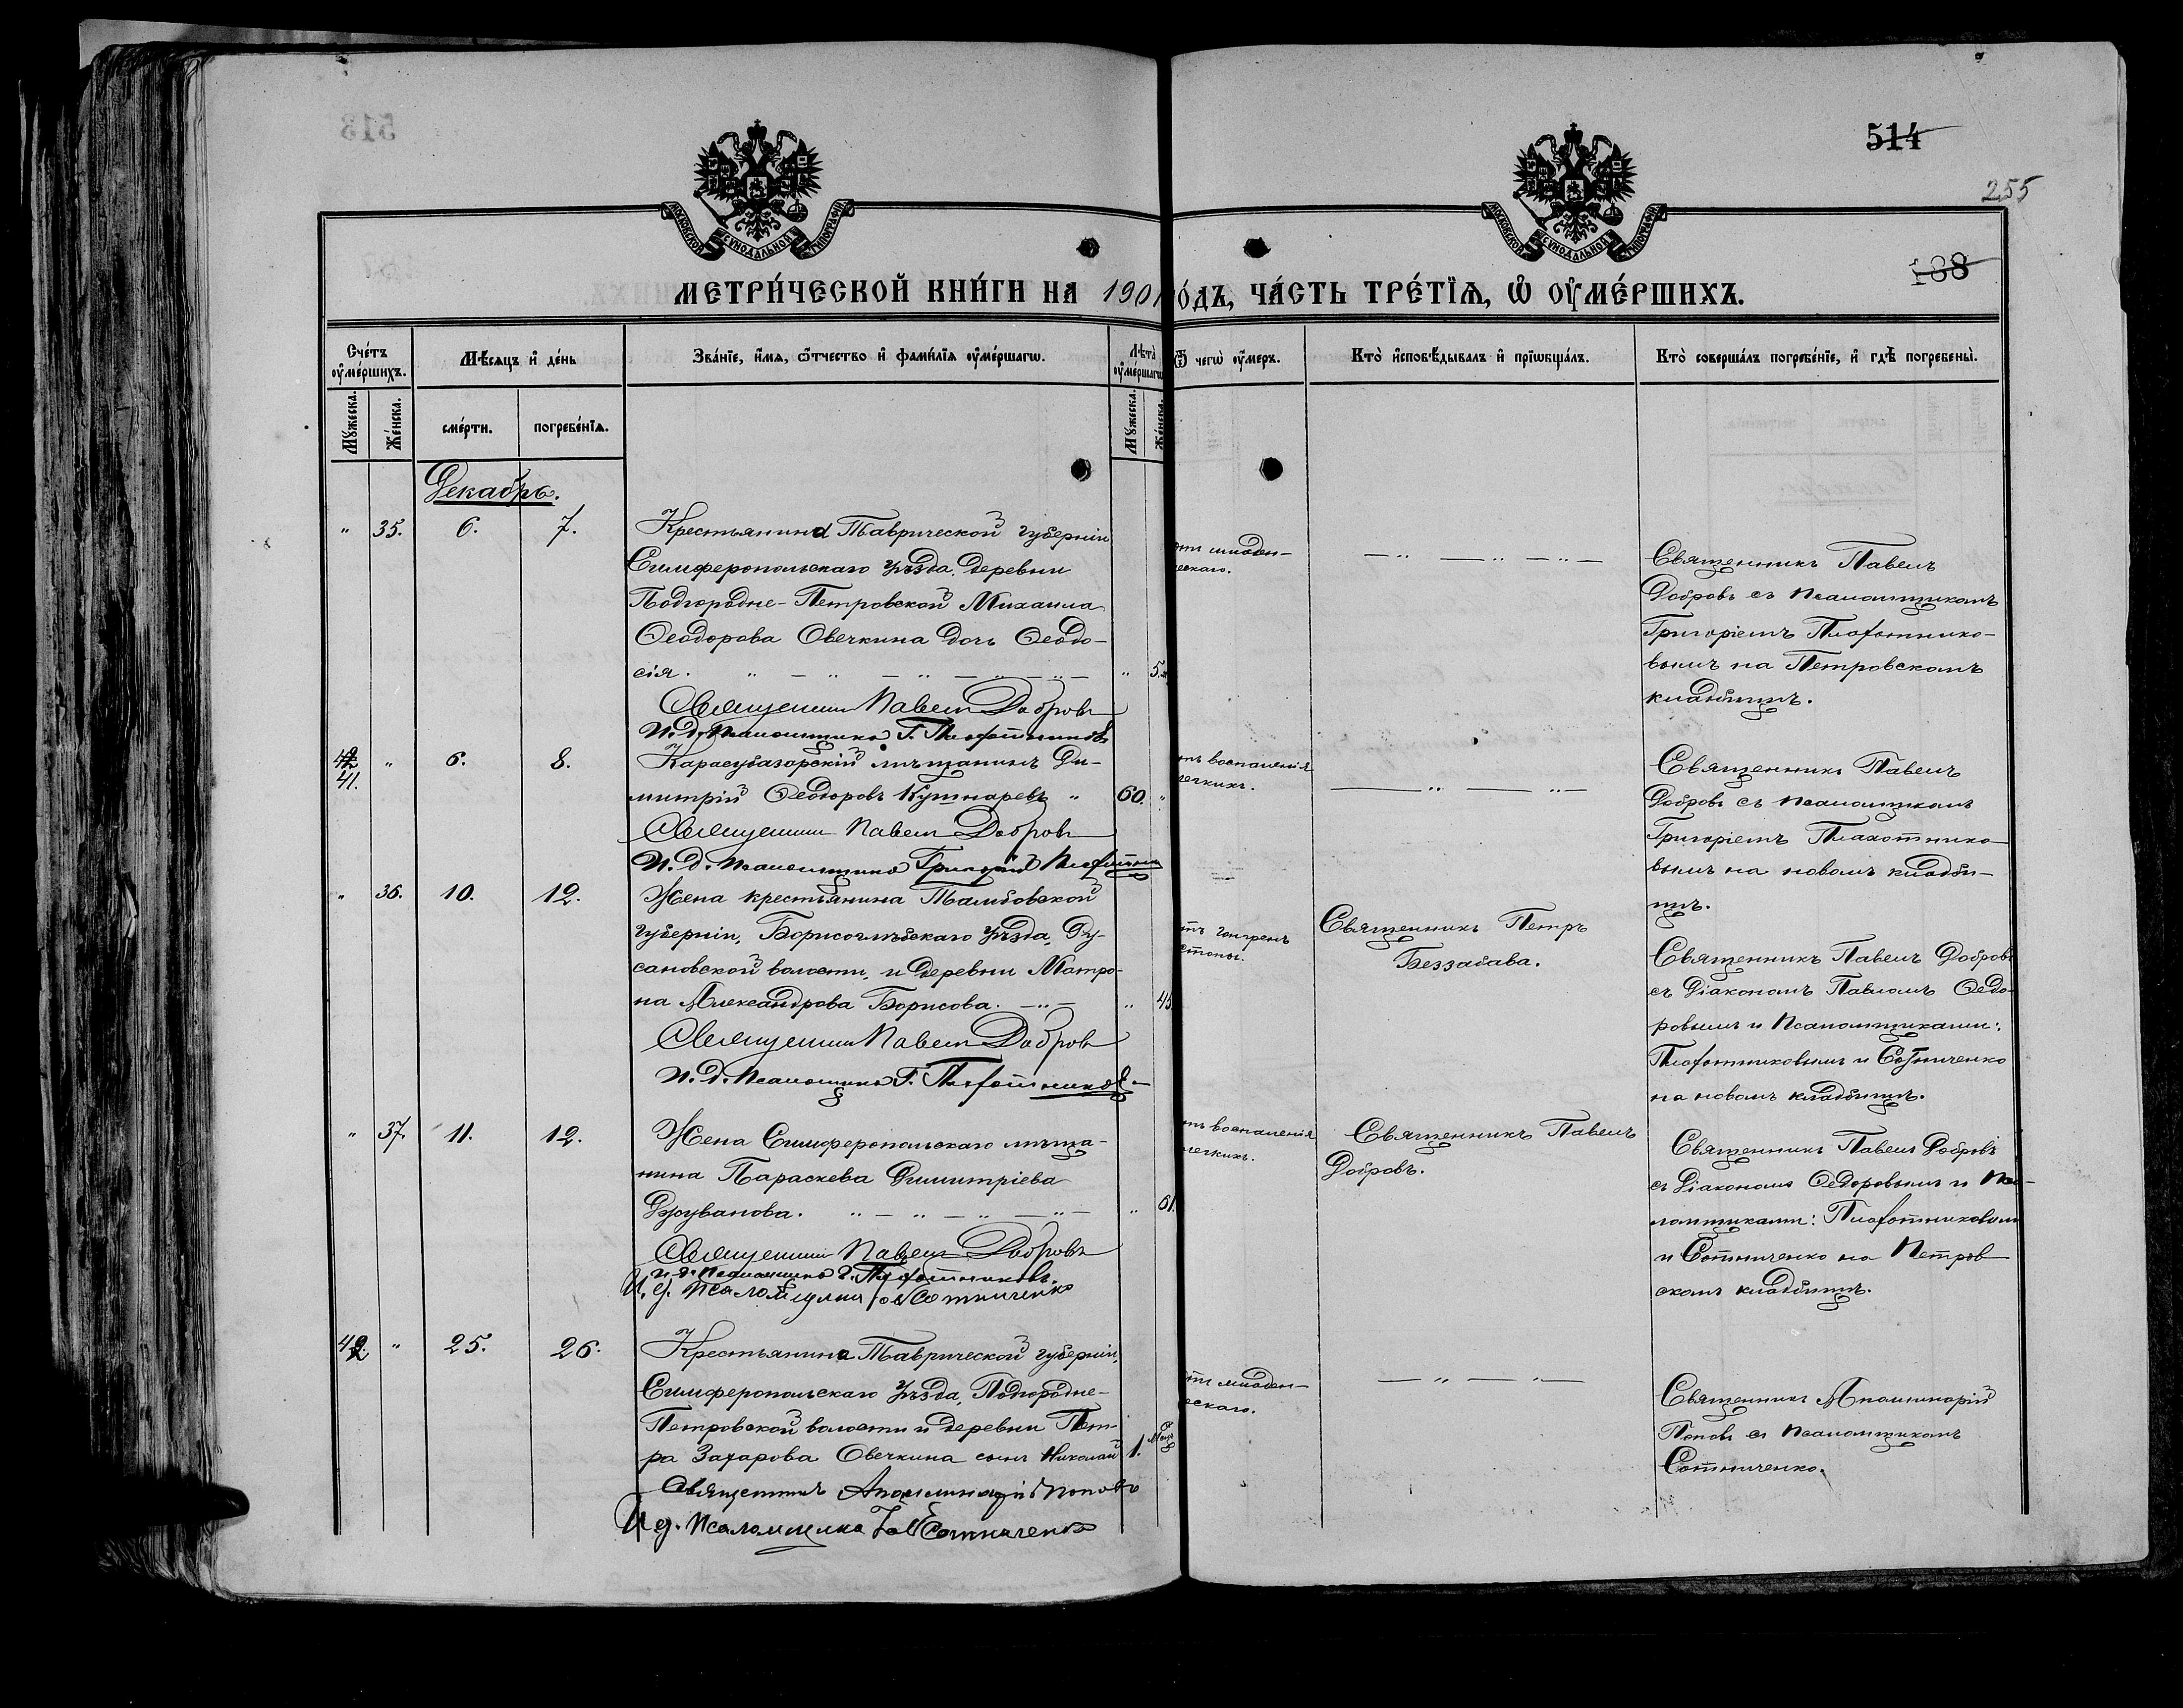 514
255
188
МОСКОВСКОЙ СѴНОДАЛЬНОЙ ТИПОГРАФІИ
МОСКОВСКОЙ СѴНОДАЛЬНОЙ ТИПОГРАФІИ
МЕТРИ́ЧЕСКОЙ КНИ́ГИ НА 1901 ГО́ДЪ, ЧА́СТЬ ТРЕ́ТЇѦ, Ѡ҆ ОУ҆МЕ́РШИХЪ.
Сче́тъ оу҆ме́ршихъ.
Мѣ́сяцъ и҆ де́нь
Зва́нїе, и҆́мѧ, ѻ҆́тчество и҆ фами́лїѧ оу҆ме́ршагѡ.
Лѣта̀ оу҆ме́ршагѡ
Ѿ чегѡ̀ оу҆́меръ.
Кто̀ и҆сповѣ́дывалъ и҆ прїѡбща́лъ.
Кто̀ соверша́лъ погребе́нїе, и҆ гдѣ̀ погребены̀.
Мꙋ́жеска.
Же́нска.
сме́рти.
погребе́нїѧ.
Мꙋ́жеска.
Же́нска.
Декабрь.
" 35. 6. 7.
Крестьянина Таврической губерніи
Симферопольскаго уѣзда, деревни
Подгородне-Петровской Михаила
Ѳеодорова Овечкина дочь Ѳеодо-
сія. " 5
Священникъ Павелъ Добровъ
И. д. Псаломщика Г. Плохотниковъ
отъ младен-
ческаго.
Священникъ Павелъ
Добровъ съ псаломщикомъ
Григоріемъ Плохотнико-
вымъ на Петровскомъ
кладбищѣ.
42
41. " 6. 8.
Карасубазарскій мѣщанинъ Ди-
митрій Ѳеодоровъ Кушнаревъ " 60. "
Священникъ Павелъ Добровъ
И. д. Псаломщика Григорій Плохотни
отъ воспаленія
легкихъ.
Священникъ Павелъ
Добровъ съ псаломщикомъ
Григоріемъ Плахотнико-
вымъ на новомъ кладби-
щѣ.
" 36. 10. 12.
Жена крестьянина Тамбовской
губерніи, Борисоглѣбскаго уѣзда, Ту-
сановской волости, и деревни Матро-
на Александрова Борисова. " 45
Священникъ Павелъ Добровъ
И. д. Псаломщика Г. Плохотниковъ
отъ гангрены
стопы.
Священникъ Петръ
Беззабава.
Священникъ Павелъ Добровъ
съ Діакономъ Павломъ Ѳедо-
ровымъ и Псаломщиками:
Плохотниковымъ и Сотниченко
на новомъ кладбищѣ.
" 37. 11. 12.
Жена Симферопольскаго мѣща-
нина Параскева Димитріева
Джуванова. " 61.
Священникъ Павелъ Добровъ
И. д. Псаломщика Г. Плохотниковъ.
И. д. Псаломщика Сотниченко
отъ воспаленія
легкихъ.
Священникъ Павелъ
Добровъ.
Священникъ Павелъ Добровъ
съ Діакономъ Ѳедоровымъ и Пса-
ломщиками: Плохотниковымъ
и Сотниченко на Петров
скомъ кладбищѣ.
42. " 25. 26.
Крестьянина Таврической губерніи,
Симферопольскаго уѣзда, Подгородне-
Петровской волости и деревни Пет-
ра Захарова Овечкина сынъ Николай 1.
Священникъ Аполлинарій Поповъ
И. д. Псаломщика Сотниченко
отъ младен-
ческаго.
Священникъ Аполлинарій
Поповъ съ Псаломщикомъ
Сотниченко.